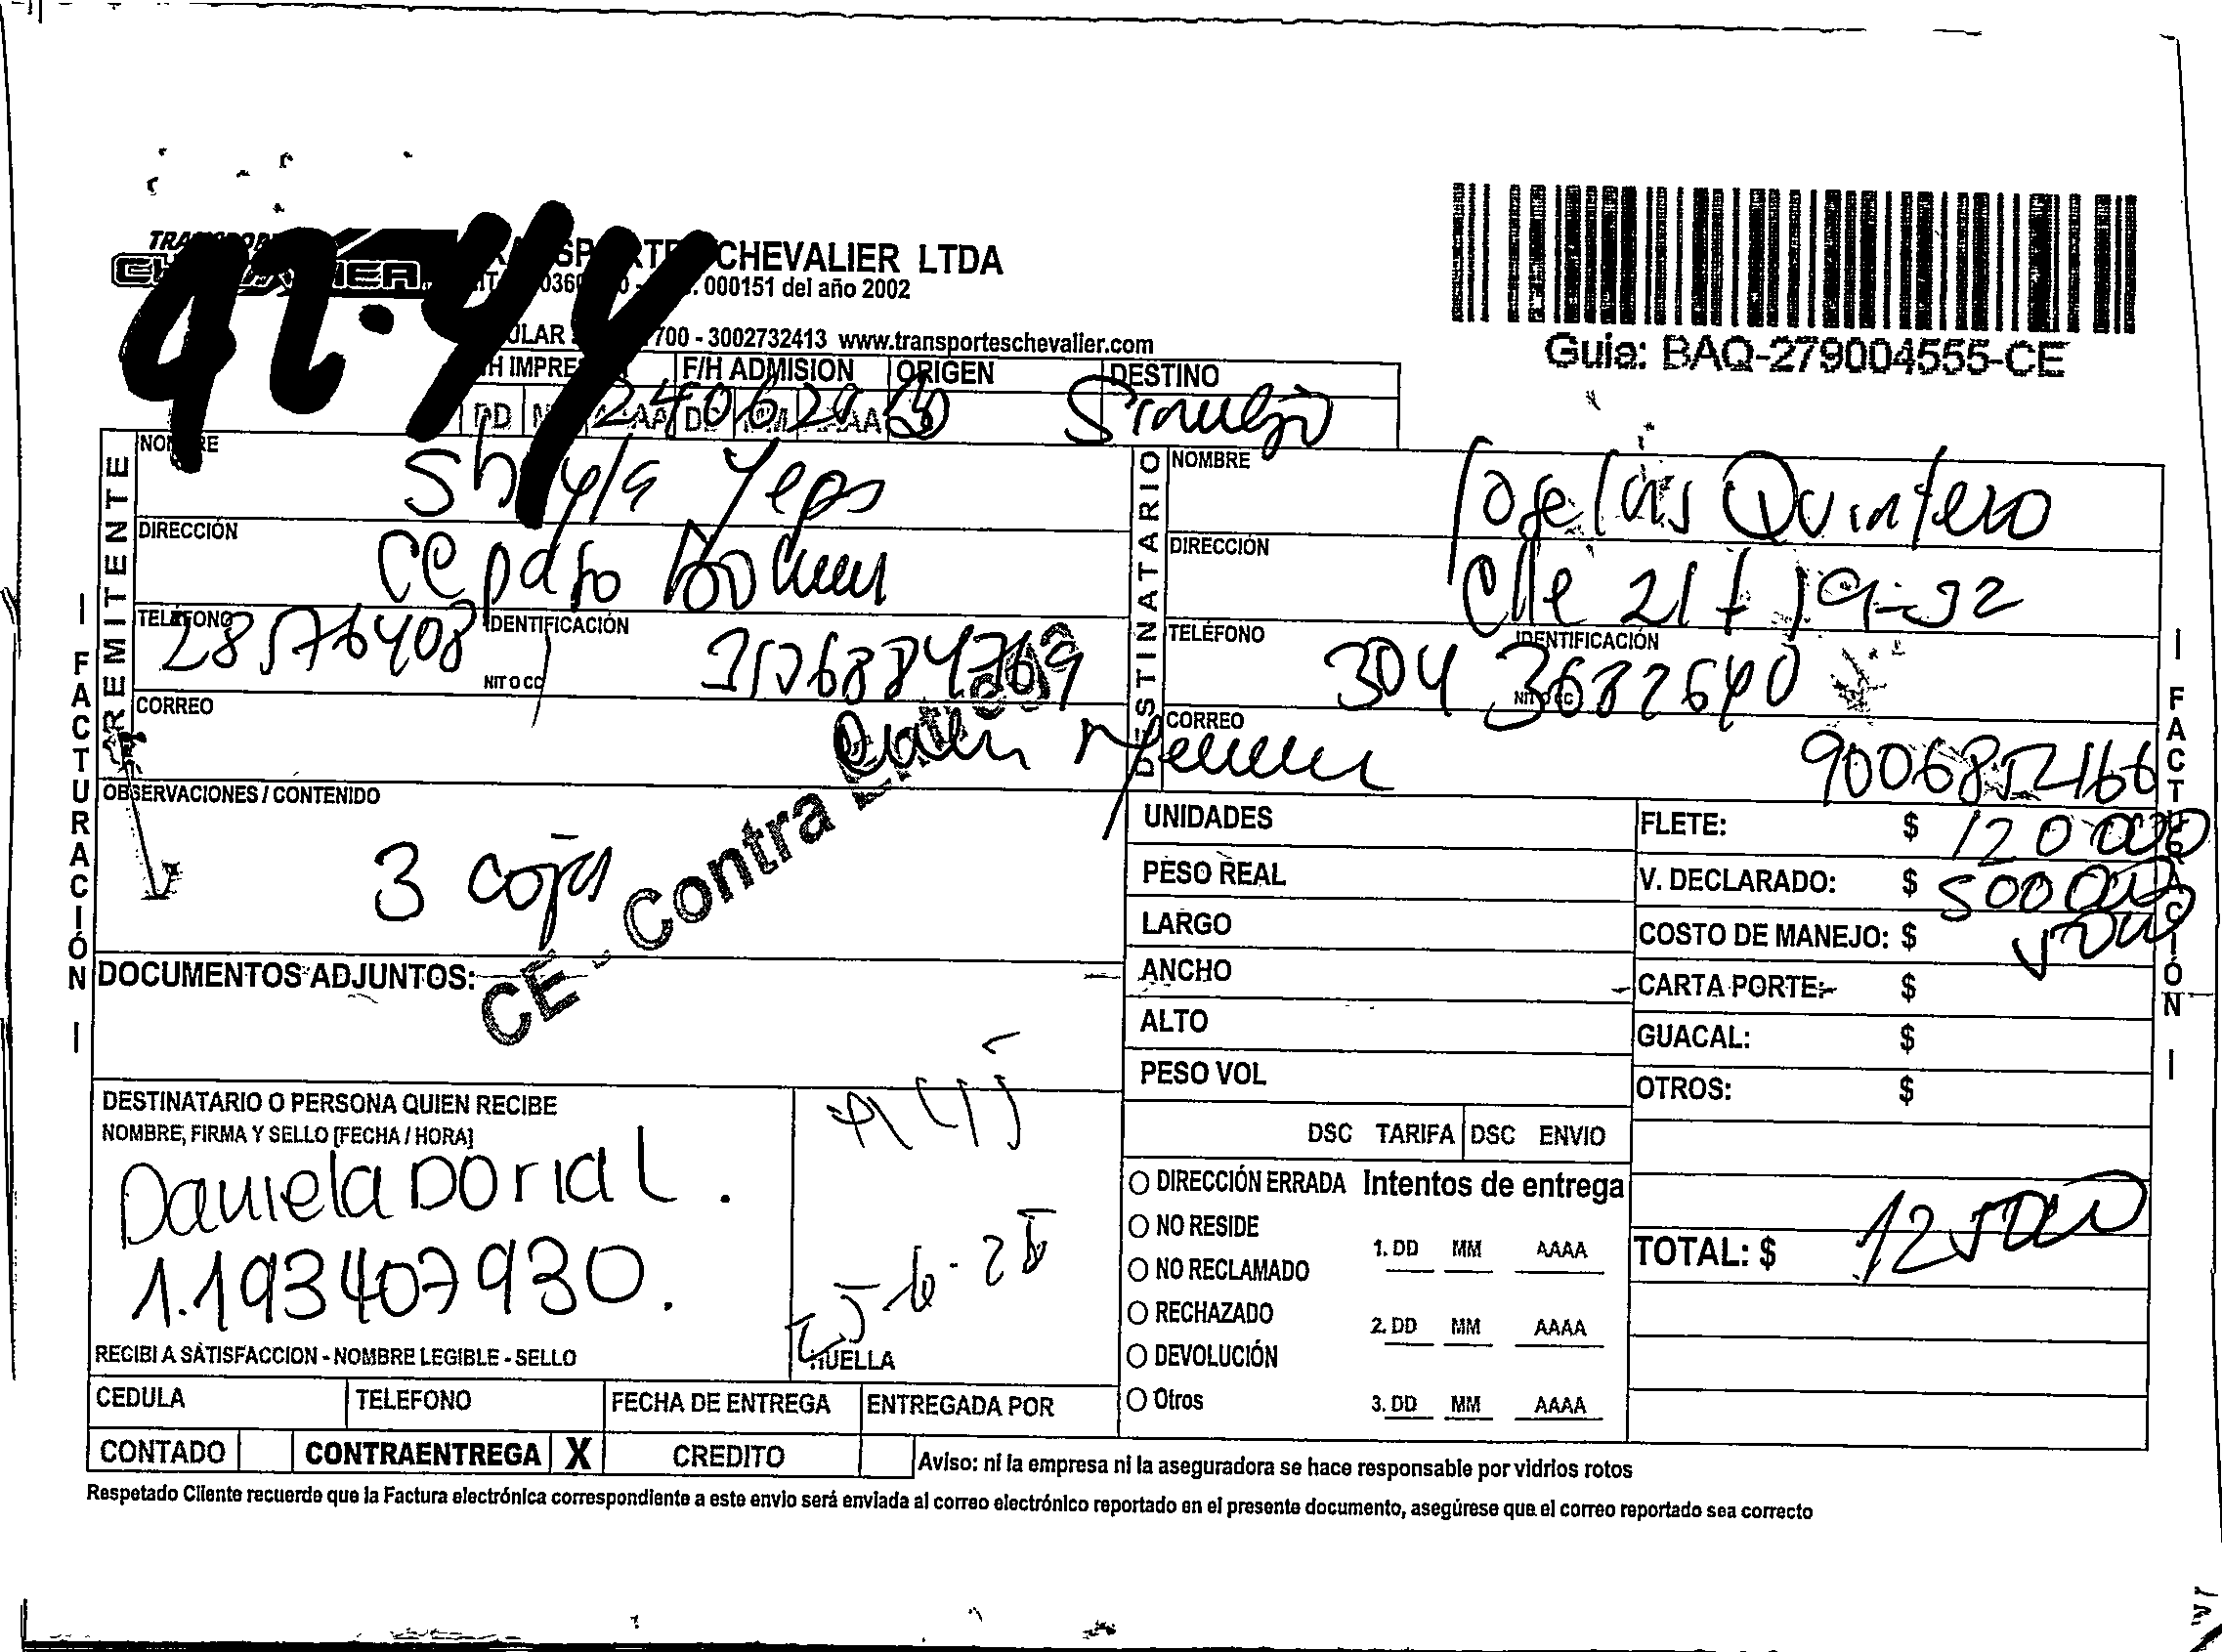 42.44
CHEVALIER LTDA
000151 del año 2002
700 - 3002732413 www.transporteschevalier.com
Guia: BAQ-279004555-CE
F/H ADMISION ORIGEN DESTINO
24 06 20
REMITENTE
NOMBRE
Yeps
DIRECCIÓN
TELÉFONO IDENTIFICACIÓN
28576408
NIT O CC
CORREO
DESTINATARIO
NOMBRE
Jose Luis Quintero
DIRECCIÓN
Clle 21 # 19-92
TELÉFONO IDENTIFICACIÓN
304 3682640
NIT O CC
CORREO
9006852166
OBSERVACIONES / CONTENIDO
3 cojas
CE - Contra Entrega
DOCUMENTOS ADJUNTOS:
UNIDADES
PESO REAL
LARGO
ANCHO
ALTO
PESO VOL
DSC TARIFA DSC ENVIO
FLETE: $ 120000
V. DECLARADO: $ 500000
COSTO DE MANEJO: $ 5000
CARTA PORTE: $
GUACAL: $
OTROS: $
TOTAL: $ 125000
DESTINATARIO O PERSONA QUIEN RECIBE
NOMBRE, FIRMA Y SELLO [FECHA / HORA]
Daniela Doria L.
1.193407930.
RECIBI A SATISFACCION - NOMBRE LEGIBLE - SELLO
25-6-25
HUELLA
DIRECCIÓN ERRADA Intentos de entrega
NO RESIDE
1. DD MM AAAA
NO RECLAMADO
RECHAZADO
2. DD MM AAAA
DEVOLUCIÓN
Otros
3. DD MM AAAA
CEDULA TELEFONO FECHA DE ENTREGA ENTREGADA POR
CONTADO CONTRAENTREGA X CREDITO
Aviso: ni la empresa ni la aseguradora se hace responsable por vidrios rotos
Respetado Cliente recuerde que la Factura electrónica correspondiente a este envio será enviada al correo electrónico reportado en el presente documento, asegúrese que el correo reportado sea correcto
| FACTURACIÓN |
| FACTURACIÓN |